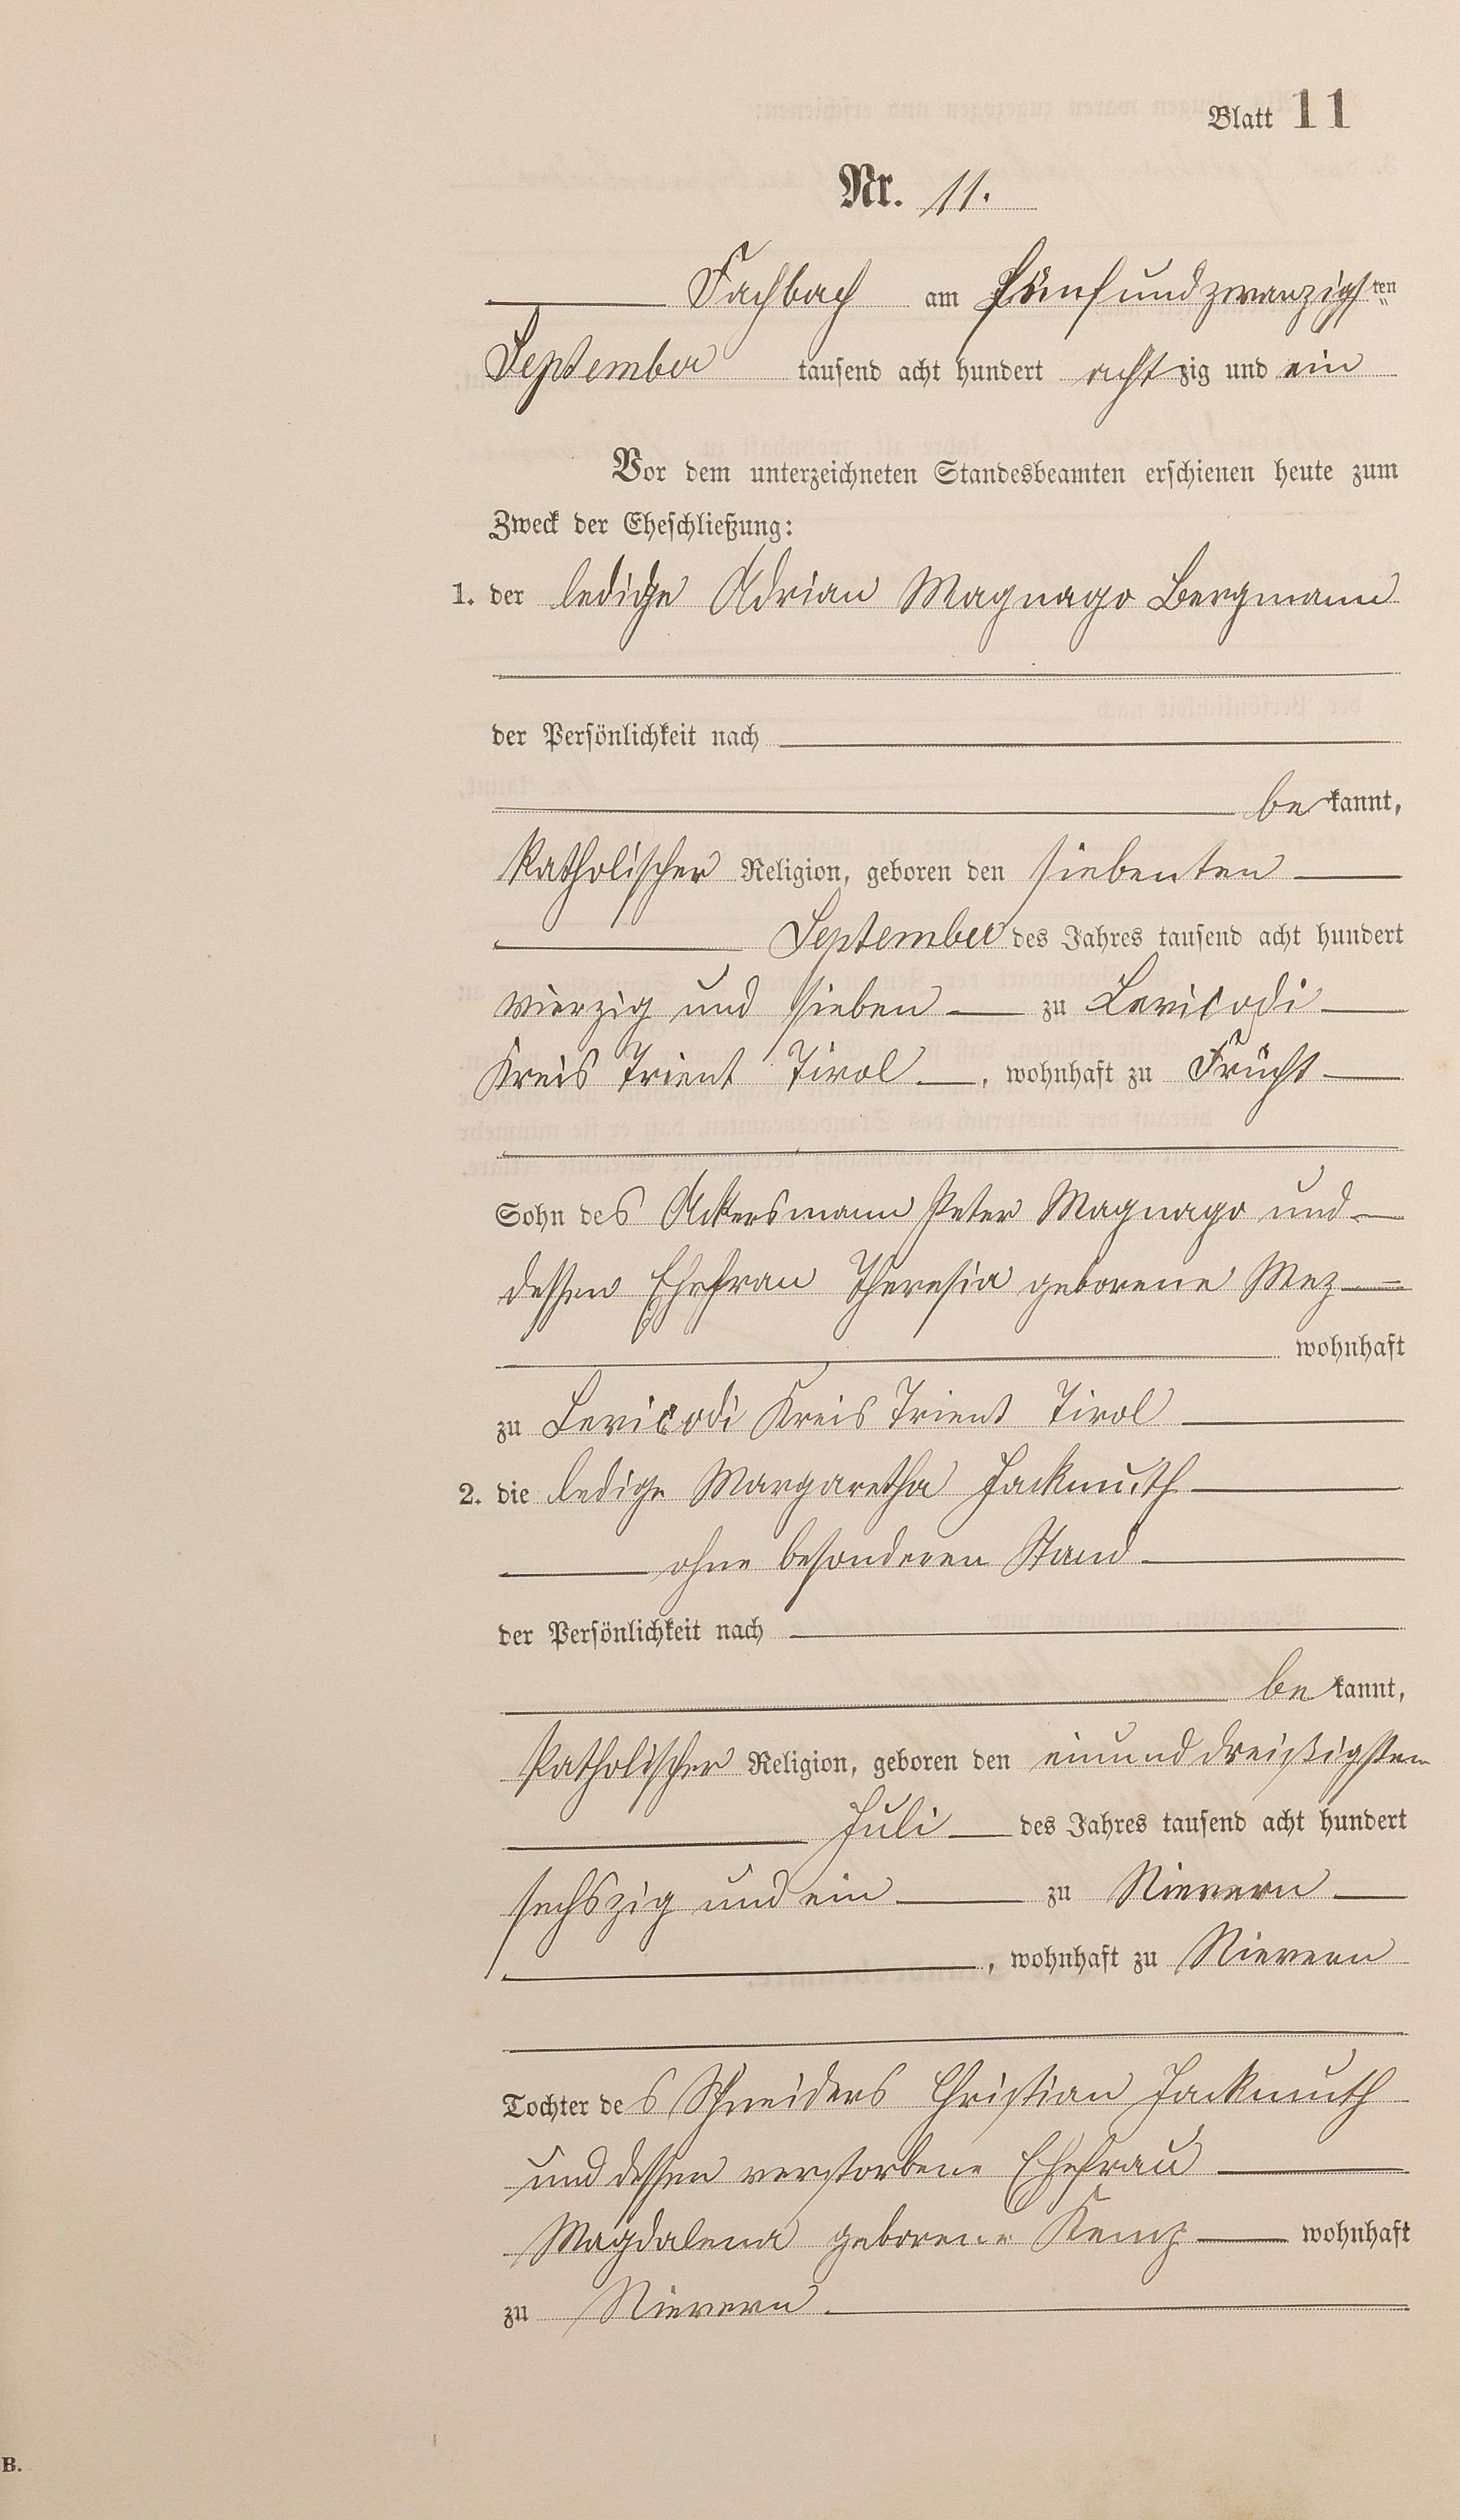 Blatt 11
Nr. 11.
Fachbach am fünfundzwanzigsten
September tausend acht hundert achtzig und ein
Vor dem unterzeichneten Standesbeamten erschienen heute zum
Zweck der Eheschließung:
1. der ledige Adrian Magnago Bergmann
der Persönlichkeit nach
be kannt,
katholischer Religion, geboren den siebenten
September des Jahres tausend acht hundert
vierzig und sieben zu Levicodi
Kreis Trient Tirol, wohnhaft zu Frücht
Sohn des Ackersmann Peter Magnago und
dessen Ehefrau Theresia geborene Mez
wohnhaft
zu Levicodi Kreis Trient Tirol
2. die ledige Margaretha Jackmuth
ohne besonderen Stand
der Persönlichkeit nach
be kannt,
katholischer Religion, geboren den einunddreißigsten
Juli des Jahres tausend acht hundert
sechszig und ein zu Nievern
, wohnhaft zu Nievern
Tochter des Schneiders Christian Jackmuth
und dessen verstorbene Ehefrau
Magdalena geborene wohnhaft
zu Nievern
B.